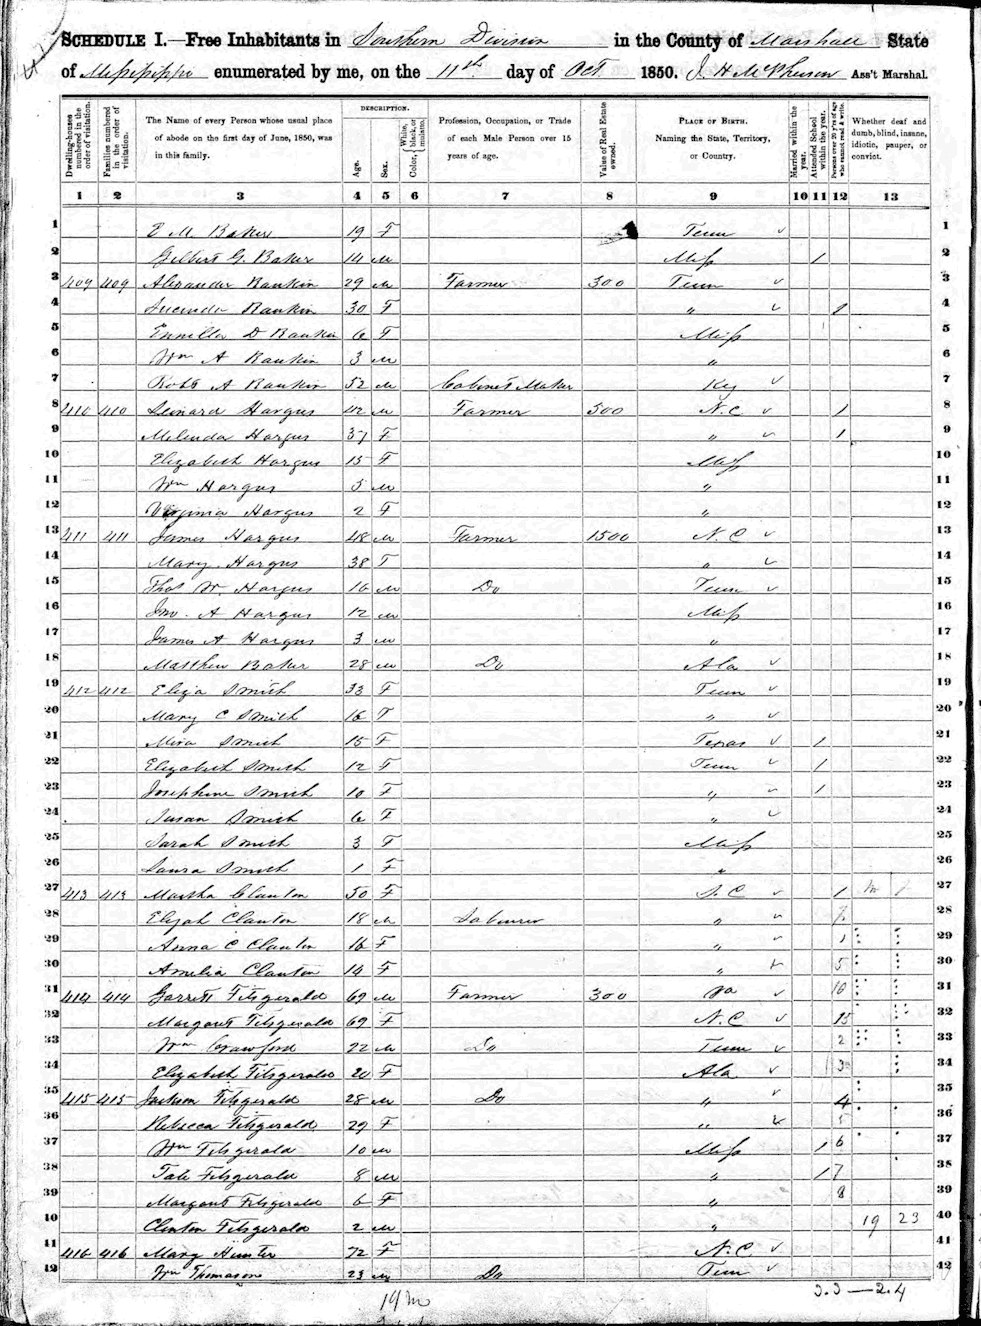 SCHEDULE I.—Free Inhabitants in Southern Division in the County of Marshall State
of Missippi enumerated by me, on the 11th day of Oct 1850. J. H McPherson Ass't Marshal.
Dwelling-houses numbered in the order of visitation.
Families numbered in the order of visitation.
The Name of every Person whose usual place of abode on the first day of June, 1850, was in this family.
DESCRIPTION.
Age.
Sex.
Color, White, black, or mulatto.
Profession, Occupation, or Trade of each Male Person over 15 years of age.
Value of Real Estate owned.
PLACE OF BIRTH. Naming the State, Territory, or Country.
Married within the year.
Attended School within the year.
Persons over 20 y'rs of age who cannot read & write.
Whether deaf and dumb, blind, insane, idiotic, pauper, or convict.
1 2 3 4 5 6 7 8 9 10 11 12 13
1 E M Baker 19 F Tenn 1
2 Gilbert G. Baker 14 M Miss 1 2
3 409 409 Alexander Rankin 29 M Farmer 300 Tenn 3
4 Lucinda Rankin 30 F " 1 4
5 D Rankin 6 F Miss 5
6 Wm A Rankin 3 M " 6
7 Robt A Rankin 52 M Cabinet Maker Ky 7
8 410 410 Leinard Hargus 42 M Farmer 500 N.C 1 8
9 Melinda Hargus 37 F " 1 9
10 Elizabeth Hargus 15 F Miss 10
11 Wm Hargus 5 M " 11
12 Virginia Hargus 2 F " 12
13 411 411 James Hargus 48 M Farmer 1500 N.C 13
14 Mary Hargus 38 F " 14
15 Thos W. Hargus 16 M Do Tenn 15
16 Jno. A Hargus 12 M Miss 16
17 James A Hargus 3 M " 17
18 Matthew Baker 28 M Do Ala 18
19 412 412 Eliza Smith 33 F Tenn 19
20 Mary C Smith 16 F " 20
21 Mira Smith 15 F Texas 1 21
22 Elizabeth Smith 12 F Tenn 1 22
23 Josephine Smith 10 F " 1 23
24 Susan Smith 6 F " 24
25 Sarah Smith 3 F Miss 25
26 Laura Smith 1 F " 26
27 413 413 Martha Clanton 50 F N.C 1 27
28 Elijah Clanton 18 M Laborer " 28
29 Anna C Clanton 16 F " 29
30 Amelia Clanton 14 F " 5 30
31 414 414 Garrett Fitzgerald 69 M Farmer 300 Va 10 31
32 Margaret Fitzgerald 69 F N.C 15 32
33 Wm Crawford 22 M Do Tenn 2 33
34 Elizabeth Fitzgerald 20 F Ala 3 34
35 415 415 Jackson Fitzgerald 28 M Do " 4 35
36 Rebecca Fitzgerald 29 F " 5 36
37 Wm Fitzgerald 10 M Miss 1 6 37
38 Tate Fitzgerald 8 M " 1 7 38
39 Margaret Fitzgerald 6 F " 8 39
40 Clinton Fitzgerald 2 M " 19 23 40
41 416 416 Mary Hunter 72 F N.C 41
42 Wm Thomason 23 M Do Tenn 42
19 m
33—24